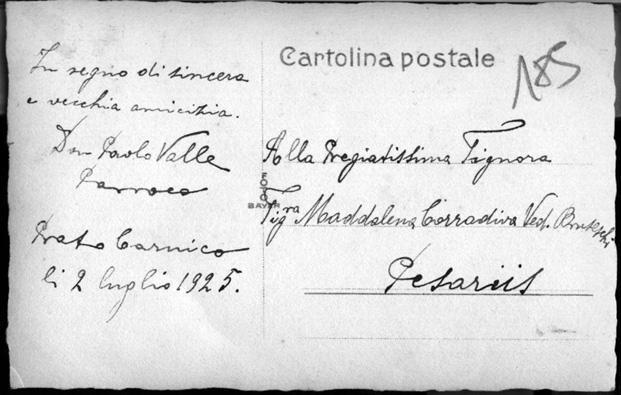 Cartolina postale
185
In segno di sincera
e vecchia amicizia.
Don Paolo Valle
Parroco
Prato Carnico
li 2 luglio 1925.
Alla Pregiatissima Signora
Sigra Maddalena Corradina Ved.
Pesariis
FOTO
BAYER